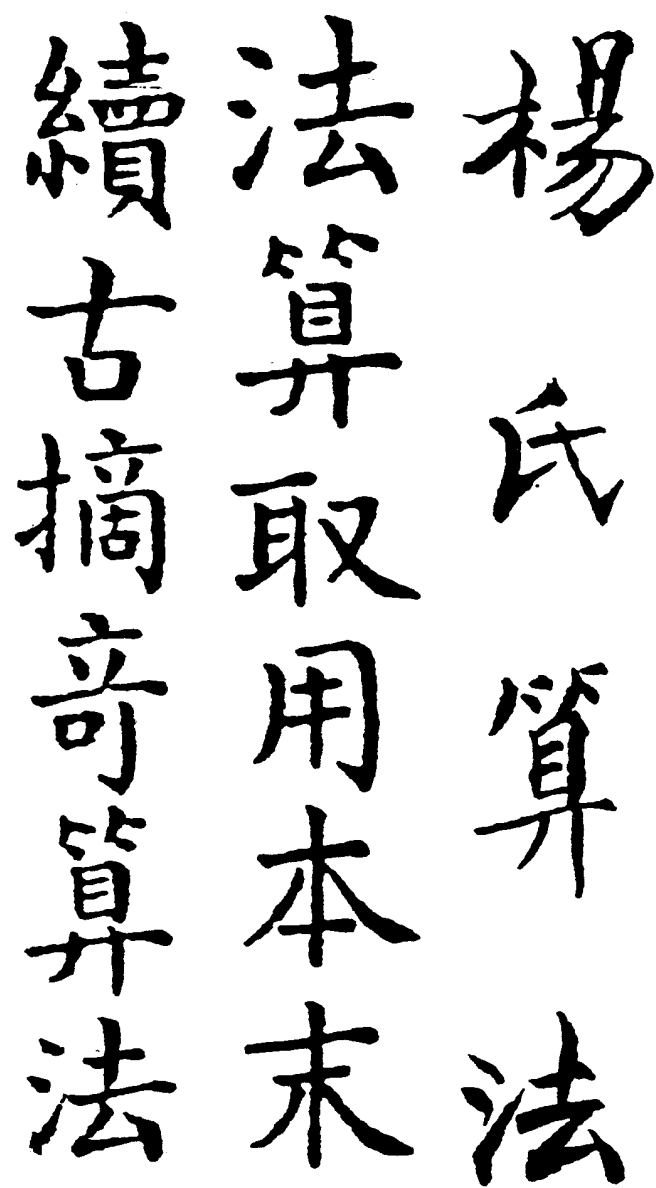 楊氏算法
法算取用本末
續古摘奇算法